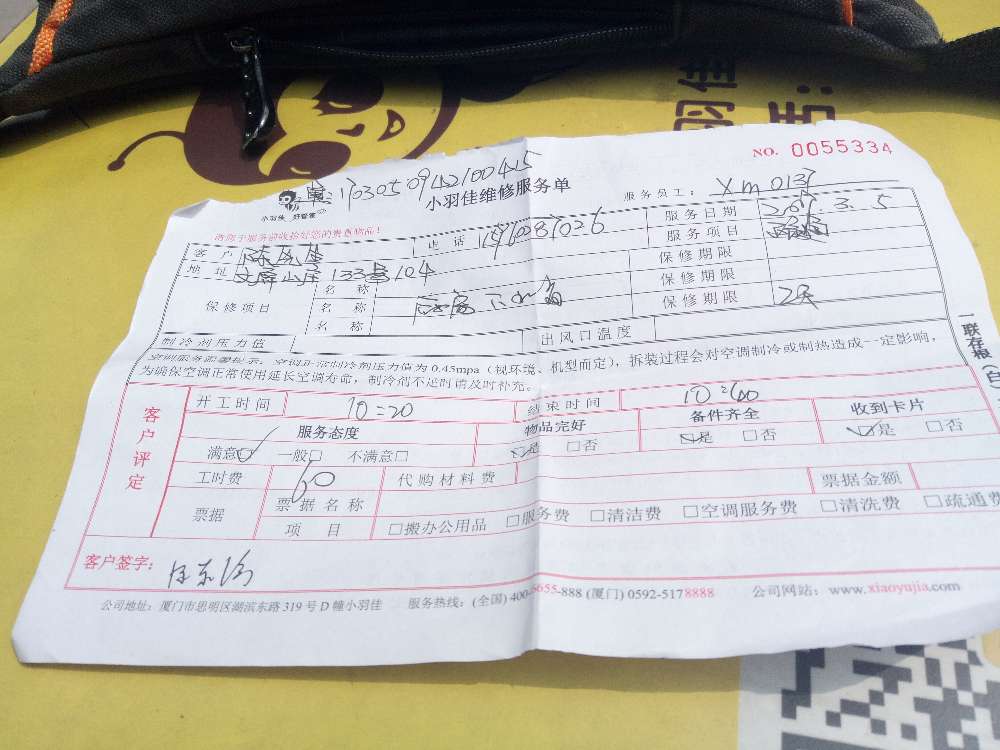 羽佳
NO. 0055334
单: 1703050942100425
小羽佳 好管家
小羽佳维修服务单
服务员工: Xm0137
请您于服务前收拾好您的贵重物品!
客户 电话 服务日期 2017.3.5
地址 133号104 服务项目
保修项目 名称 保修期限
名称 保修期限
名称 保修期限 2天
制冷剂压力值 出风口温度
空调服务温馨提示: 空调正常制冷剂压力值为0.45mpa(视环境、机型而定), 拆装过程会对空调制冷或制热造成一定影响,
为确保空调正常使用延长空调寿命, 制冷剂不足时请及时补充。
一联存根(白
客户评定
开工时间 10:20 结束时间 10:60
服务态度 物品完好 备件齐全 收到卡片
满意□ 一般□ 不满意□ □是 □否 □是 □否 □是 □否
工时费 60 代购材料费
票据 票据名称 票据金额
项目 □搬办公用品 □服务费 □清洁费 □空调服务费 □清洗费 □疏通费
客户签字:
公司地址: 厦门市思明区湖滨东路319号D幢小羽佳 服务热线: (全国) 400-5655-888 (厦门) 0592-5178888 公司网站: www.xiaoyujia.com